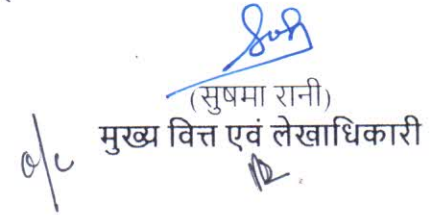 (सुषमा रानी)
मुख्य वित्त एवं लेखाधिकारी
o/c